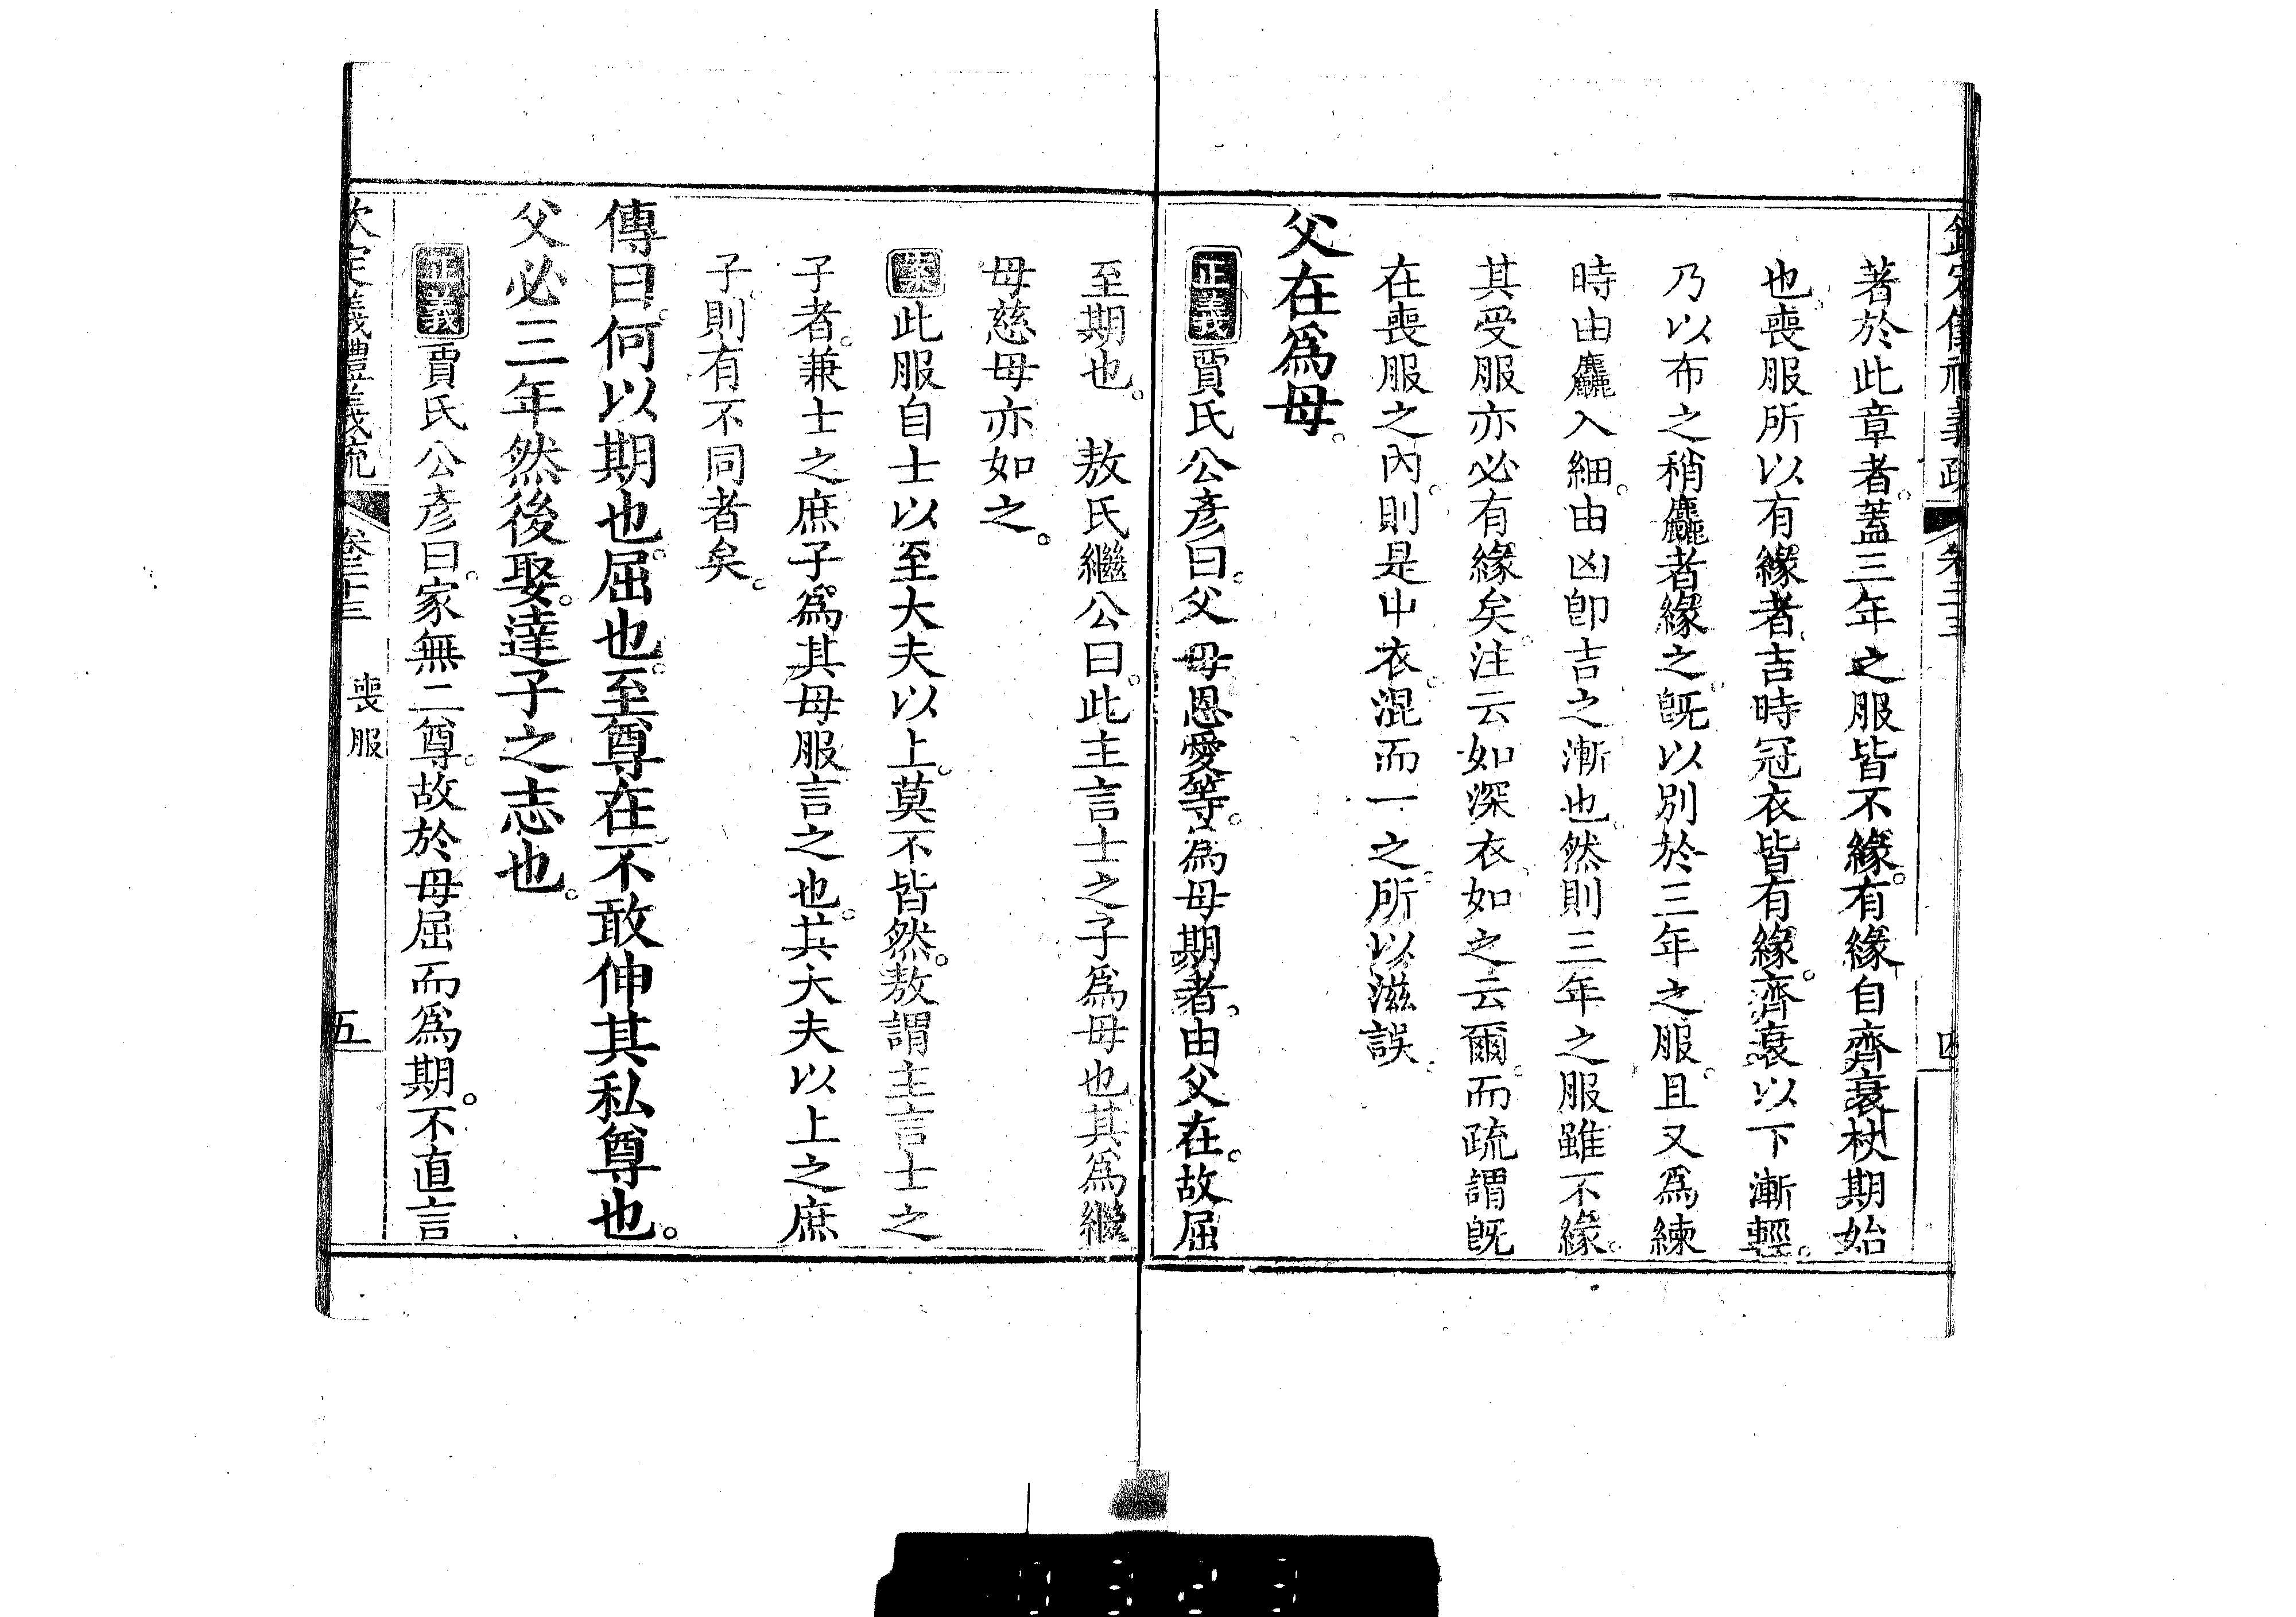 欽定儀禮義疏 卷二十三 四
著於此章者蓋三年之服皆不緣有緣自齊衰杖期始
也喪服所以有緣者吉時冠衣皆有緣齊衰以下漸輕
乃以布之稍麤者緣之旣以別於三年之服且又爲練
時由麤入細由凶卽吉之漸也然則三年之服雖不緣
其受服亦必有緣矣注云如深衣如之云爾而疏謂旣
在喪服之內則是中衣混而一之所以滋誤
父在爲母
正義賈氏公彥曰父母恩愛等爲母期者由父在故屈
至期也 敖氏繼公曰此主言士之子爲母也其爲繼
母慈母亦如之
案此服自士以至大夫以上莫不皆然敖謂主言士之
子者兼士之庶子爲其母服言之也其大夫以上之庶
子則有不同者矣
傳曰何以期也屈也至尊在不敢伸其私尊也
父必三年然後娶達子之志也
正義賈氏公彥曰家無二尊故於母屈而爲期不直言
欽定儀禮義疏 卷二十三 喪服 五
0323